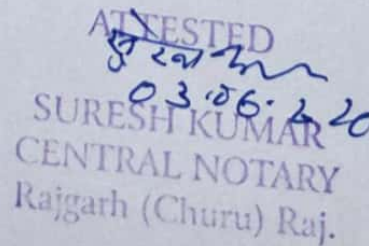 ATTESTED
सुरेश कुमार
SURESH KUMAR
CENTRAL NOTARY
Rajgarh (Churu) Raj.